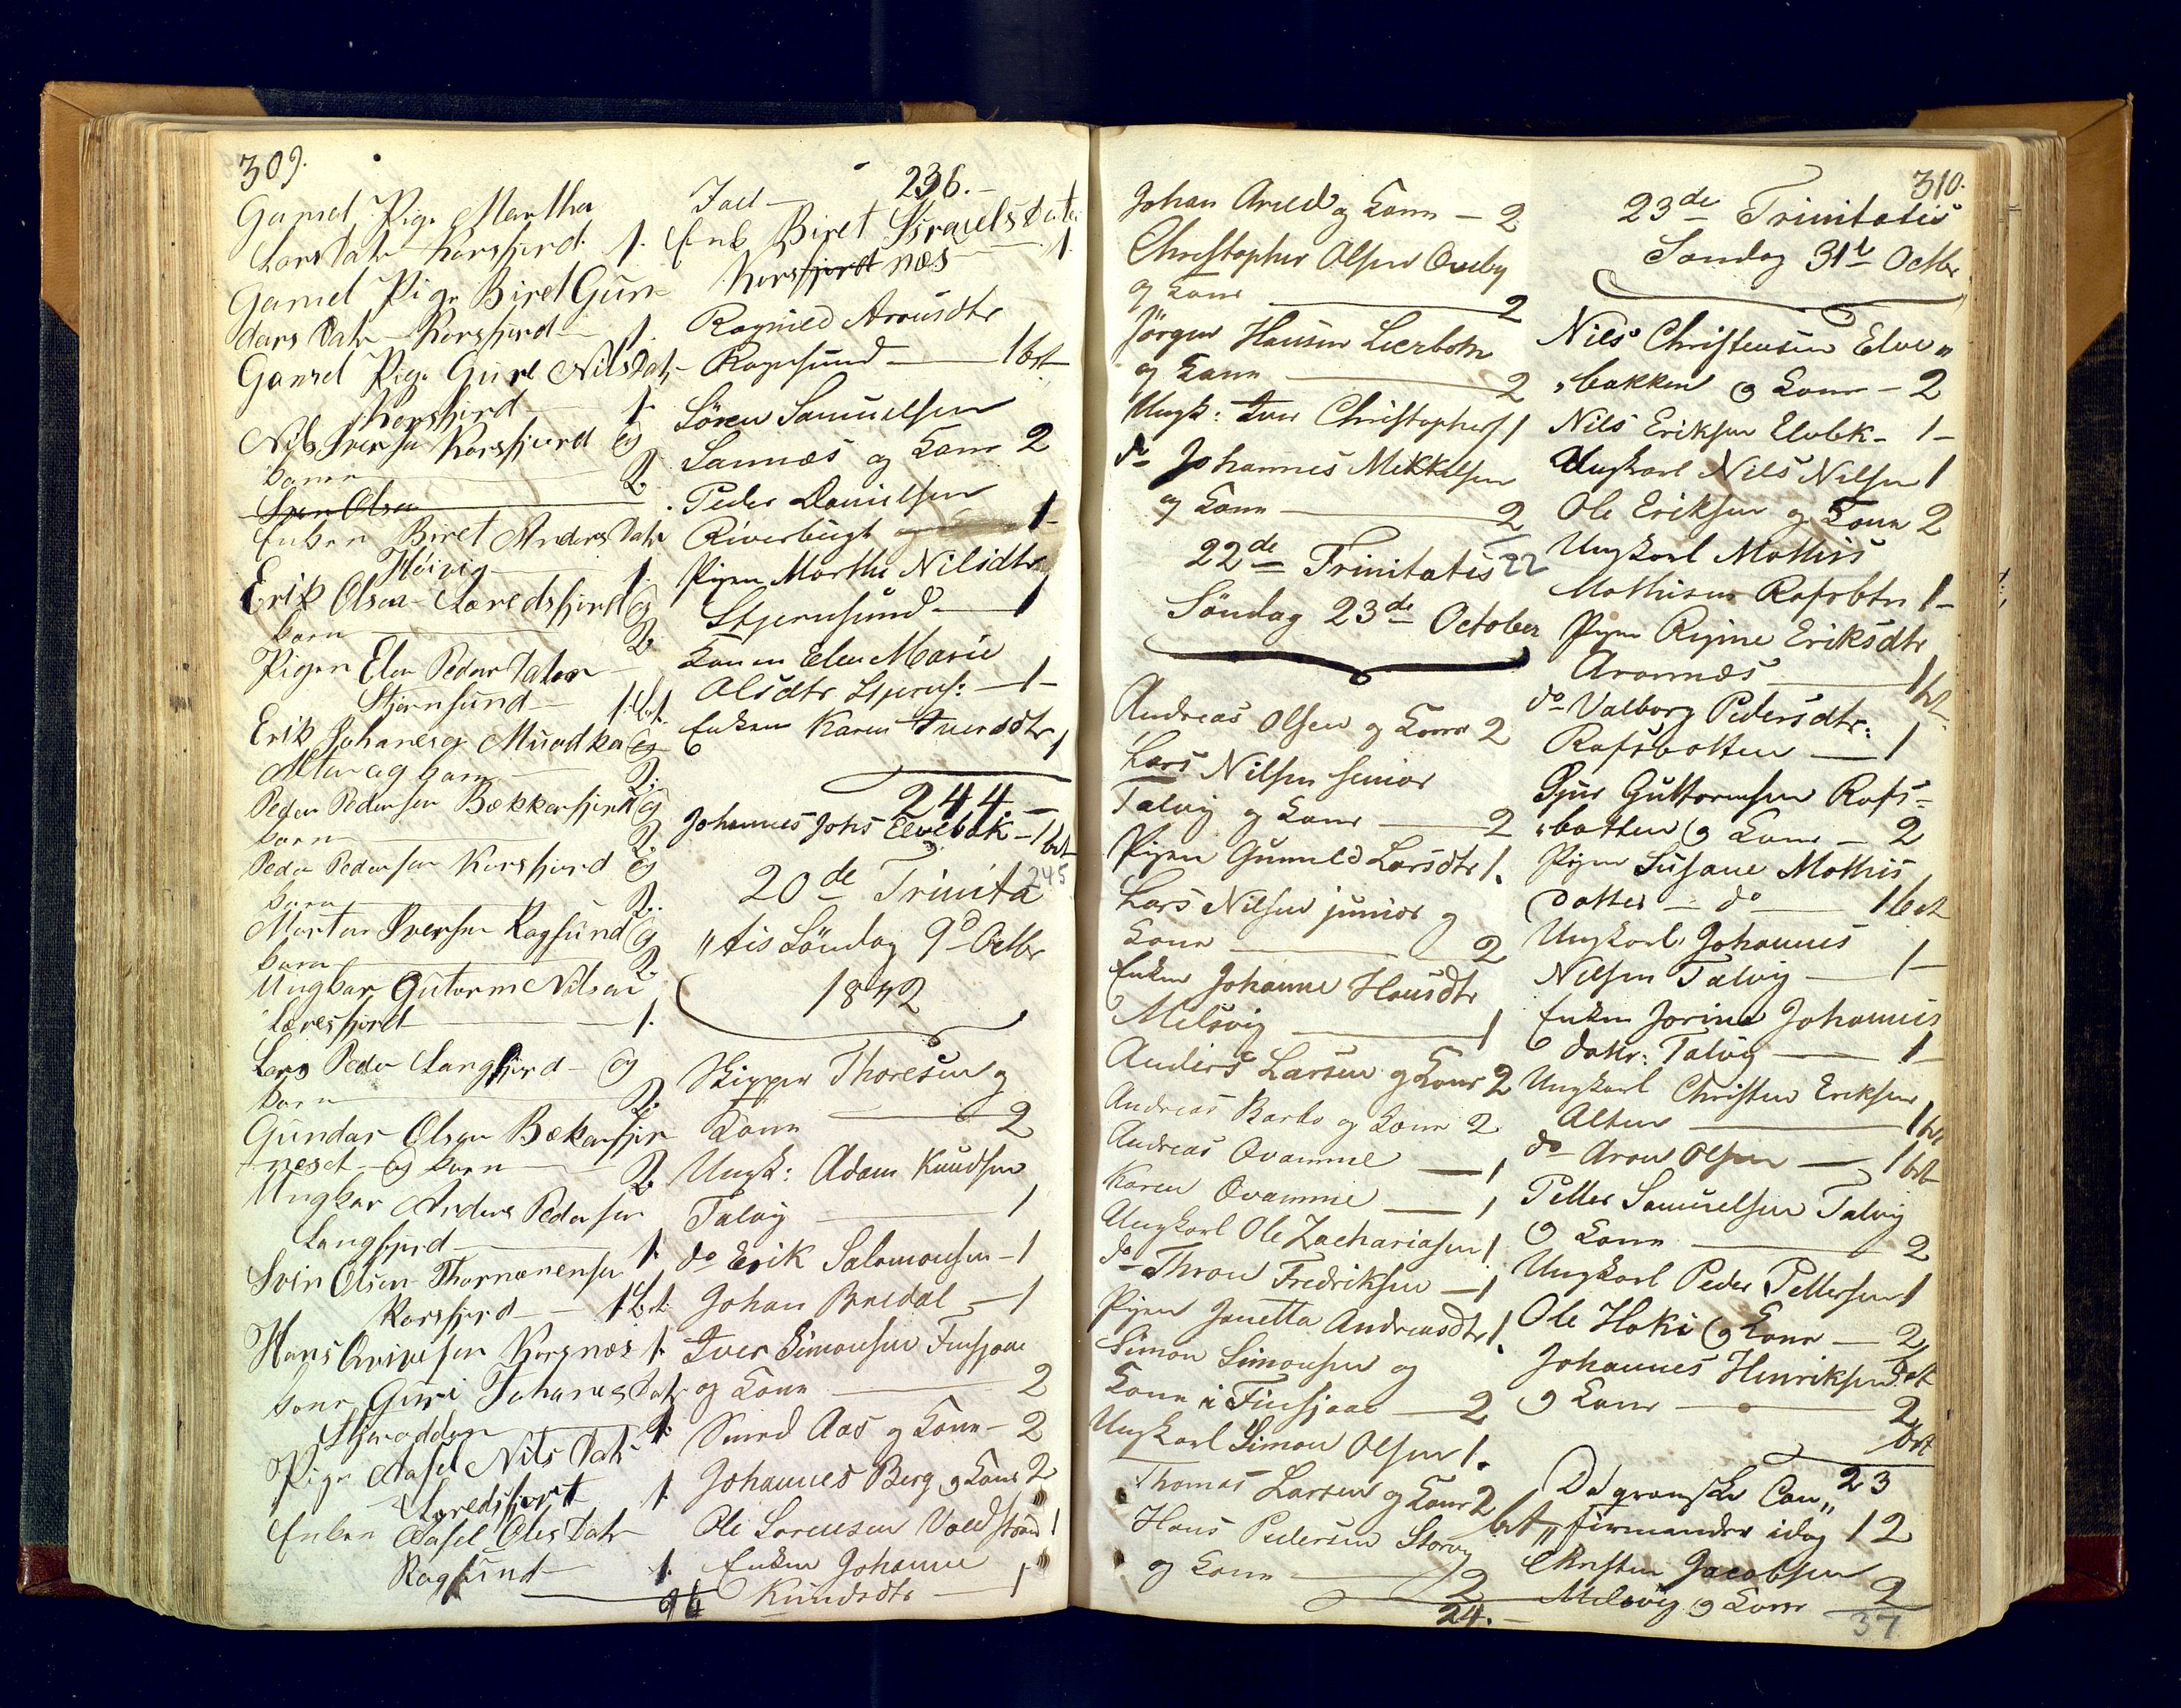 309.
Gamel Pige Martha
Lars Datr Korsfiord. 1.
Gamel Pige Biret Gun-
dars Datr Korsfiord 1.
Gamel Pige Gure Nils Datr
Korsfiord 1.
Nils Iversen Korsfiord og
kone 2.
Enken Biret Anders Datr
1.
Erik Olsen Laredsfiord og
kone 2.
Pigen Elen Peder Dater
Stjernsund 1 bt.
Erik Johanesen og
Alten og kone 2.
Peder Pedersen Bekkerfiord og
kone 2.
Peder Pedersen Korsfiord og
kone 2.
Morten Iversen Rogsund og
kone 2.
Ungkar Gutorm Nilsen
Laresfjord 1.
Lars Peder Langfiord - og
kone 2.
Gundar Olsen Bekarfjor
neset - og kone 2.
Ungkar Anders Pedersen
Langfjord 1.
Svin Olsen
Korsfjord 1 bt.
Hans Korsnæs 1.
kone Guri Johanes Datr
1.
Pige Aasel Nils Datr
Laredsfjort 1.
Enken Aasel Oles Datr
Rogsund 1.
236.
Enk Biret Israels Dater
Korsfjord næs 1.
Ragnild Aronsdtr
Rognsund 1 bt
Sören Samuelsen
Sannæs og Kone 2
Peder Danielsen
Riverbugt 1-
Pigen Marthe Nilsdtr
Stjernsund 1
Konen Elen Marie
Olsdtr Stjerns: -1-
Enken Karen Iversdtr 1
244
Johannes Johs Elvebak - 1 bt
245
20de Trinita
"tis Söndag 9d Octbr
1842
Skipper Thoresen og
Kone 2
Ungk: Adam Knudsen
Talvig 1
do Erik Salomonsen - 1
Johan Bredal - 1
Iver Simonsen
og Kone 2
Smed Aas og Kone - 2
Johannes Berg og Kone 2
Ole Sorensen 1
Enken Johanne
Knudsdtr 1
310.
Johan Arild og Kone - 2
Christopher Olsen Qvæby
og Kone 2
Jörgen Hansen Leerbotn
og Kone 2
Ungk: Iver Christophers 1
do Johannes Mikkelsen
og Kone 2
22de Trinitatis 22
Söndag 23de October
Andreas Olsen og Kone 2
Lars Nilsen Senior
Talvig og Kone 2
Pigen Gunild Larsdtr 1.
Lars Nilsen junior og
Kone 2
Enken Johanne Hansdtr
Melsvig 1
Anders Larsen og Kone 2
Andreas Barbo og Kone 2
Andreas Qvamme 1
Karen Qvamme 1
Ungkarl Ole Zachariasen 1
do Thron Fredriksen - 1
Pigen Janetta Andreasdtr 1.
Simon Simonsen og
Kone i 2
Ungkarl Simon Olsen 1.
Thomas Larsen og Kone 2
Hans Pedersen Storvig bt
og Kone 2
24.
23de Trinitatis
Söndag 31te Octbr
Nils Christensen Elve"
"bakken og Kone - 2
Nils Eriksen Elvbk - 1-
Ungkarl Nils Nilsen 1
Ole Eriksen og Kone 2
Ungkarl Mathis
Mathisen Rafsbtn 1-
Pigen Regine Eriksdtr
Aronnæs 1 bt
do Valborg Pedersdtr:
Rafsbotten 1
Guttormsen Rafs=
"botten og Kone - 2
Pigen Susane Mathis
Datter - do 1 bt
Ungkarl Johannes
Nilsen Talvig 1-
Enken Jorine Johannes
datr: Talvig 1-
Ungkarl Christen Eriksen
Alten 1 bt
do Aron Olsen - 1 bt
Petter Samuelsen Talvig
og Kone 2
Ungkarl Peder Pettersen 1
Ole Hoki og Kone - 2
bt
Johannes Henriksen
og Kone 2
bt
23
De qvænske Con"
"firmander idag 12
Christen Jacobsen
Melsvig og Kone 2
37